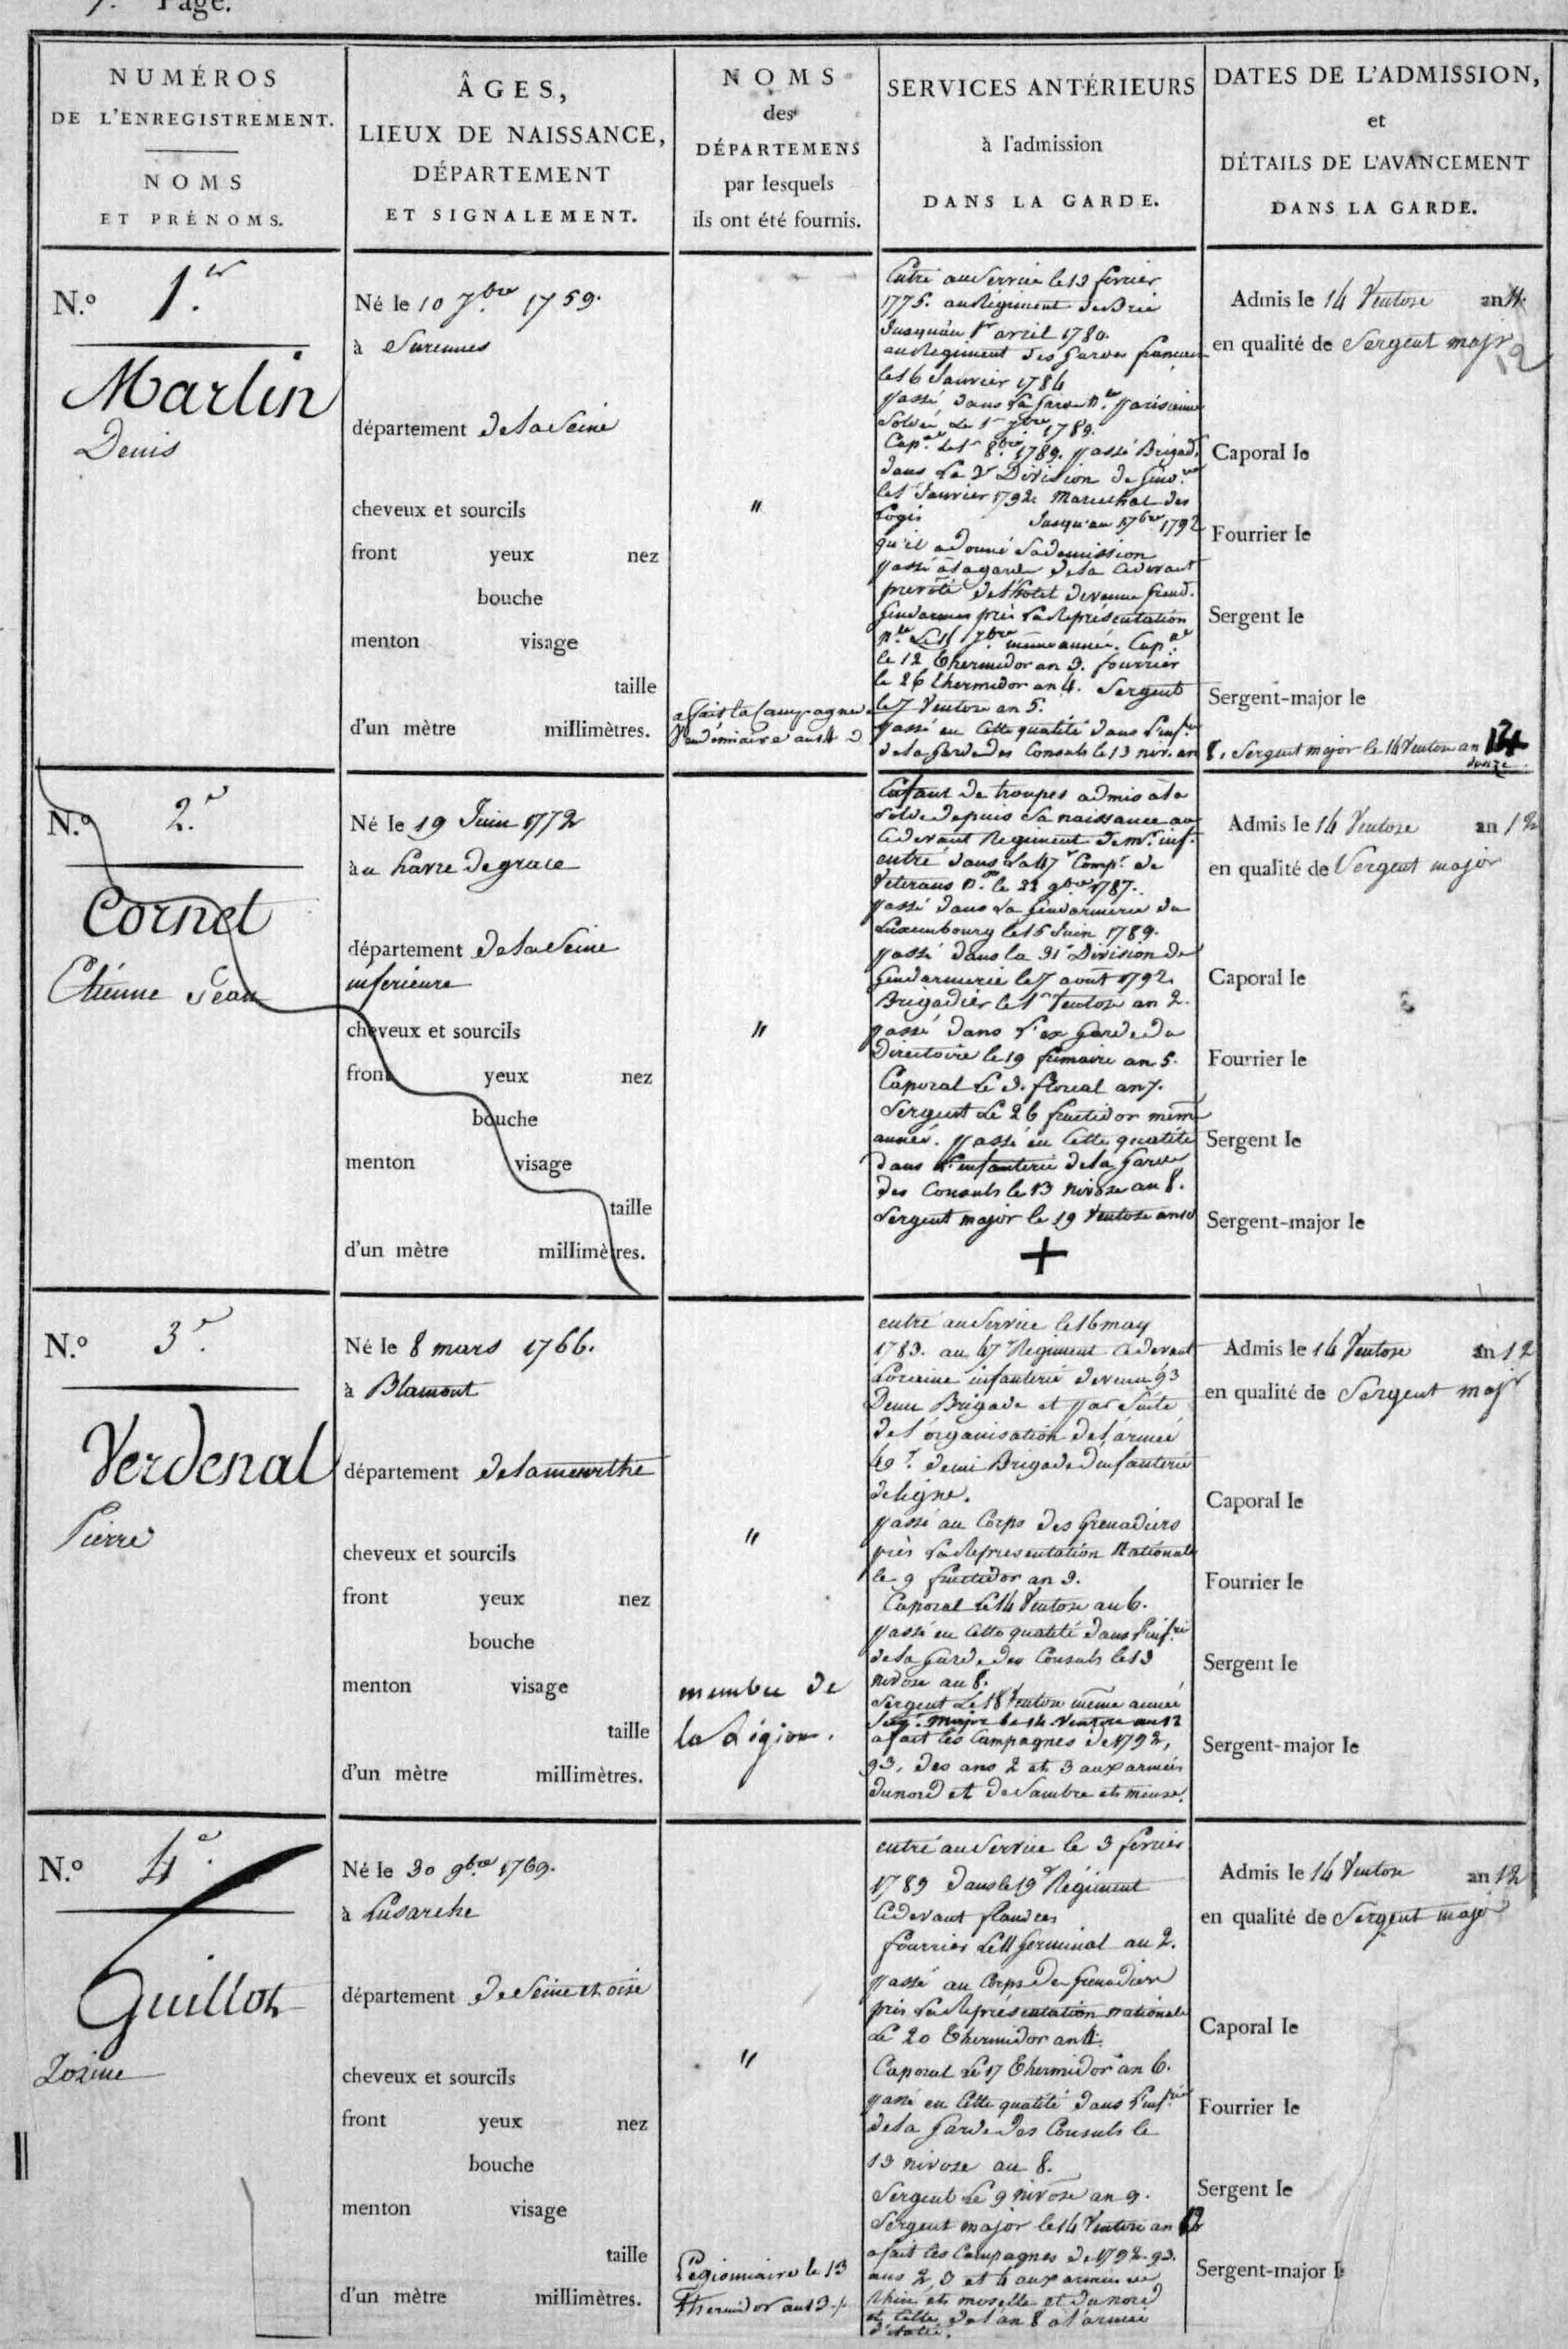 7. Page.
NUMÉROS
DE L'ENREGISTREMENT.
NOMS
ET PRÉNOMS.
ÂGES,
LIEUX DE NAISSANCE,
DÉPARTEMENT
ET SIGNALEMENT.
NOMS
des
DÉPARTEMENS
par lesquels
ils ont été fournis.
SERVICES ANTÉRIEURS
à l'admission
DANS LA GARDE.
DATES DE L'ADMISSION,
et
DÉTAILS DE L'AVANCEMENT
DANS LA GARDE.
N.o 1.er
Martin
Denis
Né le 10 7.bre 1759.
à Surennes
département de la Seine
cheveux et sourcils
front yeux nez
bouche
menton visage
taille
d'un mètre millimètres.
"
a fait la Campagne de
Vendémiaire an 14
Entré au Service le 13 fevrier
1775. au Régiment de Brie
Jusqu'au 1er avril 1780.
au Regiment des Gardes francaises
le 16 Janvier 1784
passé dans la Garde N.le parisienne
Soldée le 1er 7bre 1789.
Cap.al le 1er 8bre 1789. passé Brigad.
dans la Division de Gend.rie
le 1er Janvier 1792. Marechal des
Logis Jusqu'au 1792
qu'il a donné sa demission
passé à la garde de la cidevant
prevôté de l'hotel devenue Grend.
Gendarmes près la Représentation
N.le le 11 7bre même année. Cap.al
le 12 thermidor an 3. fourrier
le 26 thermidor an 4. Sergent
le 7 Ventose an 5.
passé en cette qualité dans l'inf.rie
de la Garde des Consuls le 13 niv. an 8. Sergent major le 14 Ventose an 12
douze.
Admis le 14 Ventose an
12
en qualité de Sergent major
Caporal le
Fourrier le
Sergent le
Sergent-major le
N.o 2.e
Cornet
Etienne Jean
Né le 19 Juin 1772
à au havre de grace
département de la Seine
inferieure
cheveux et sourcils
front yeux nez
bouche
menton visage
taille
d'un mètre millimètres.
"
Enfant de troupes admis à la
solde depuis sa naissance au
cidevant Regiment de inf.
entré dans la 47e Comp.e de
Veterans N.le le 22 9bre 1787.
passé dans la Gendarmerie du
Luxembourg le 15 Juin 1789.
passé dans la 31e Division de
Gendarmerie le 7 août 1792.
Brigadier le 1er Ventose an 2.
passé dans l'ex Garde du
Directoire le 19 frimaire an 5.
Caporal le 3. floreal an 7.
Sergent le 26 fructidor même
année. passé en cette qualité
dans l'infanterie de la Garde
des Consuls le 13 nivose an 8.
Sergent major le 19 Ventose an 10
+
Admis le 14 Ventose an 12
en qualité de Sergent major
Caporal le
Fourrier le
Sergent le
Sergent-major le
N.o 3.e
Verdenal
Pierre
Né le 8 mars 1766.
à Blamont
département de la meurthe
cheveux et sourcils
front yeux nez
bouche
menton visage
taille
d'un mètre millimètres.
"
membre de
la Légion.
entré au Service le 16 may
1783. au 47e Régiment cidevant
Lorraine infanterie devenu 93
Demi Brigade et par suite
de l'organisation de l'armée
49e. demi Brigade d'infanterie
de ligne.
passé au Corps des Grenadiers
près la Représentation Nationale
le 9 fructidor an 3.
Caporal le 14 Ventose an 6.
passé en cette qualité dans l'inf.rie
de la Garde des Consuls le 13
nivose an 8.
Sergent le 18 Ventose même année
Serg.t Major le 14 Ventose an 12
a fait les Campagnes de 1792,
93, des ans 2 et 3 aux armées
du nord et de Sambre et meuse.
Admis le 14 Ventose an 12
en qualité de Sergent major
Caporal le
Fourrier le
Sergent le
Sergent-major le
N.o 4.e
Guillot
Zozime
Né le 30 9bre 1769.
à Lusarche
département de Seine et oise
cheveux et sourcils
front yeux nez
bouche
menton visage
taille
d'un mètre millimètres.
"
Légionnaire le 13
Thermidor an 13
entré au Service le 3 fevrier
1789 dans le 19e Régiment
cidevant flandres
fourrier le 11 Germinal an 2.
passé au Corps de Grenadiers
près la Représentation nationale
le 20 thermidor an 4.
Caporal le 17 thermidor an 6.
passé en cette qualité dans l'inf.rie
de la Garde des Consuls le
13 nivose an 8.
Sergent le 9 nivose an 9.
Sergent major le 14 Ventose an 12
a fait les Campagnes de 1792. 93.
ans 2, 3 et 4 aux armées de
Rhin et moselle et du nord
et celle de l'an 8 a l'armée
d'italie.
Admis le 14 Ventose an 12
en qualité de Sergent major
Caporal le
Fourrier le
Sergent le
Sergent-major le